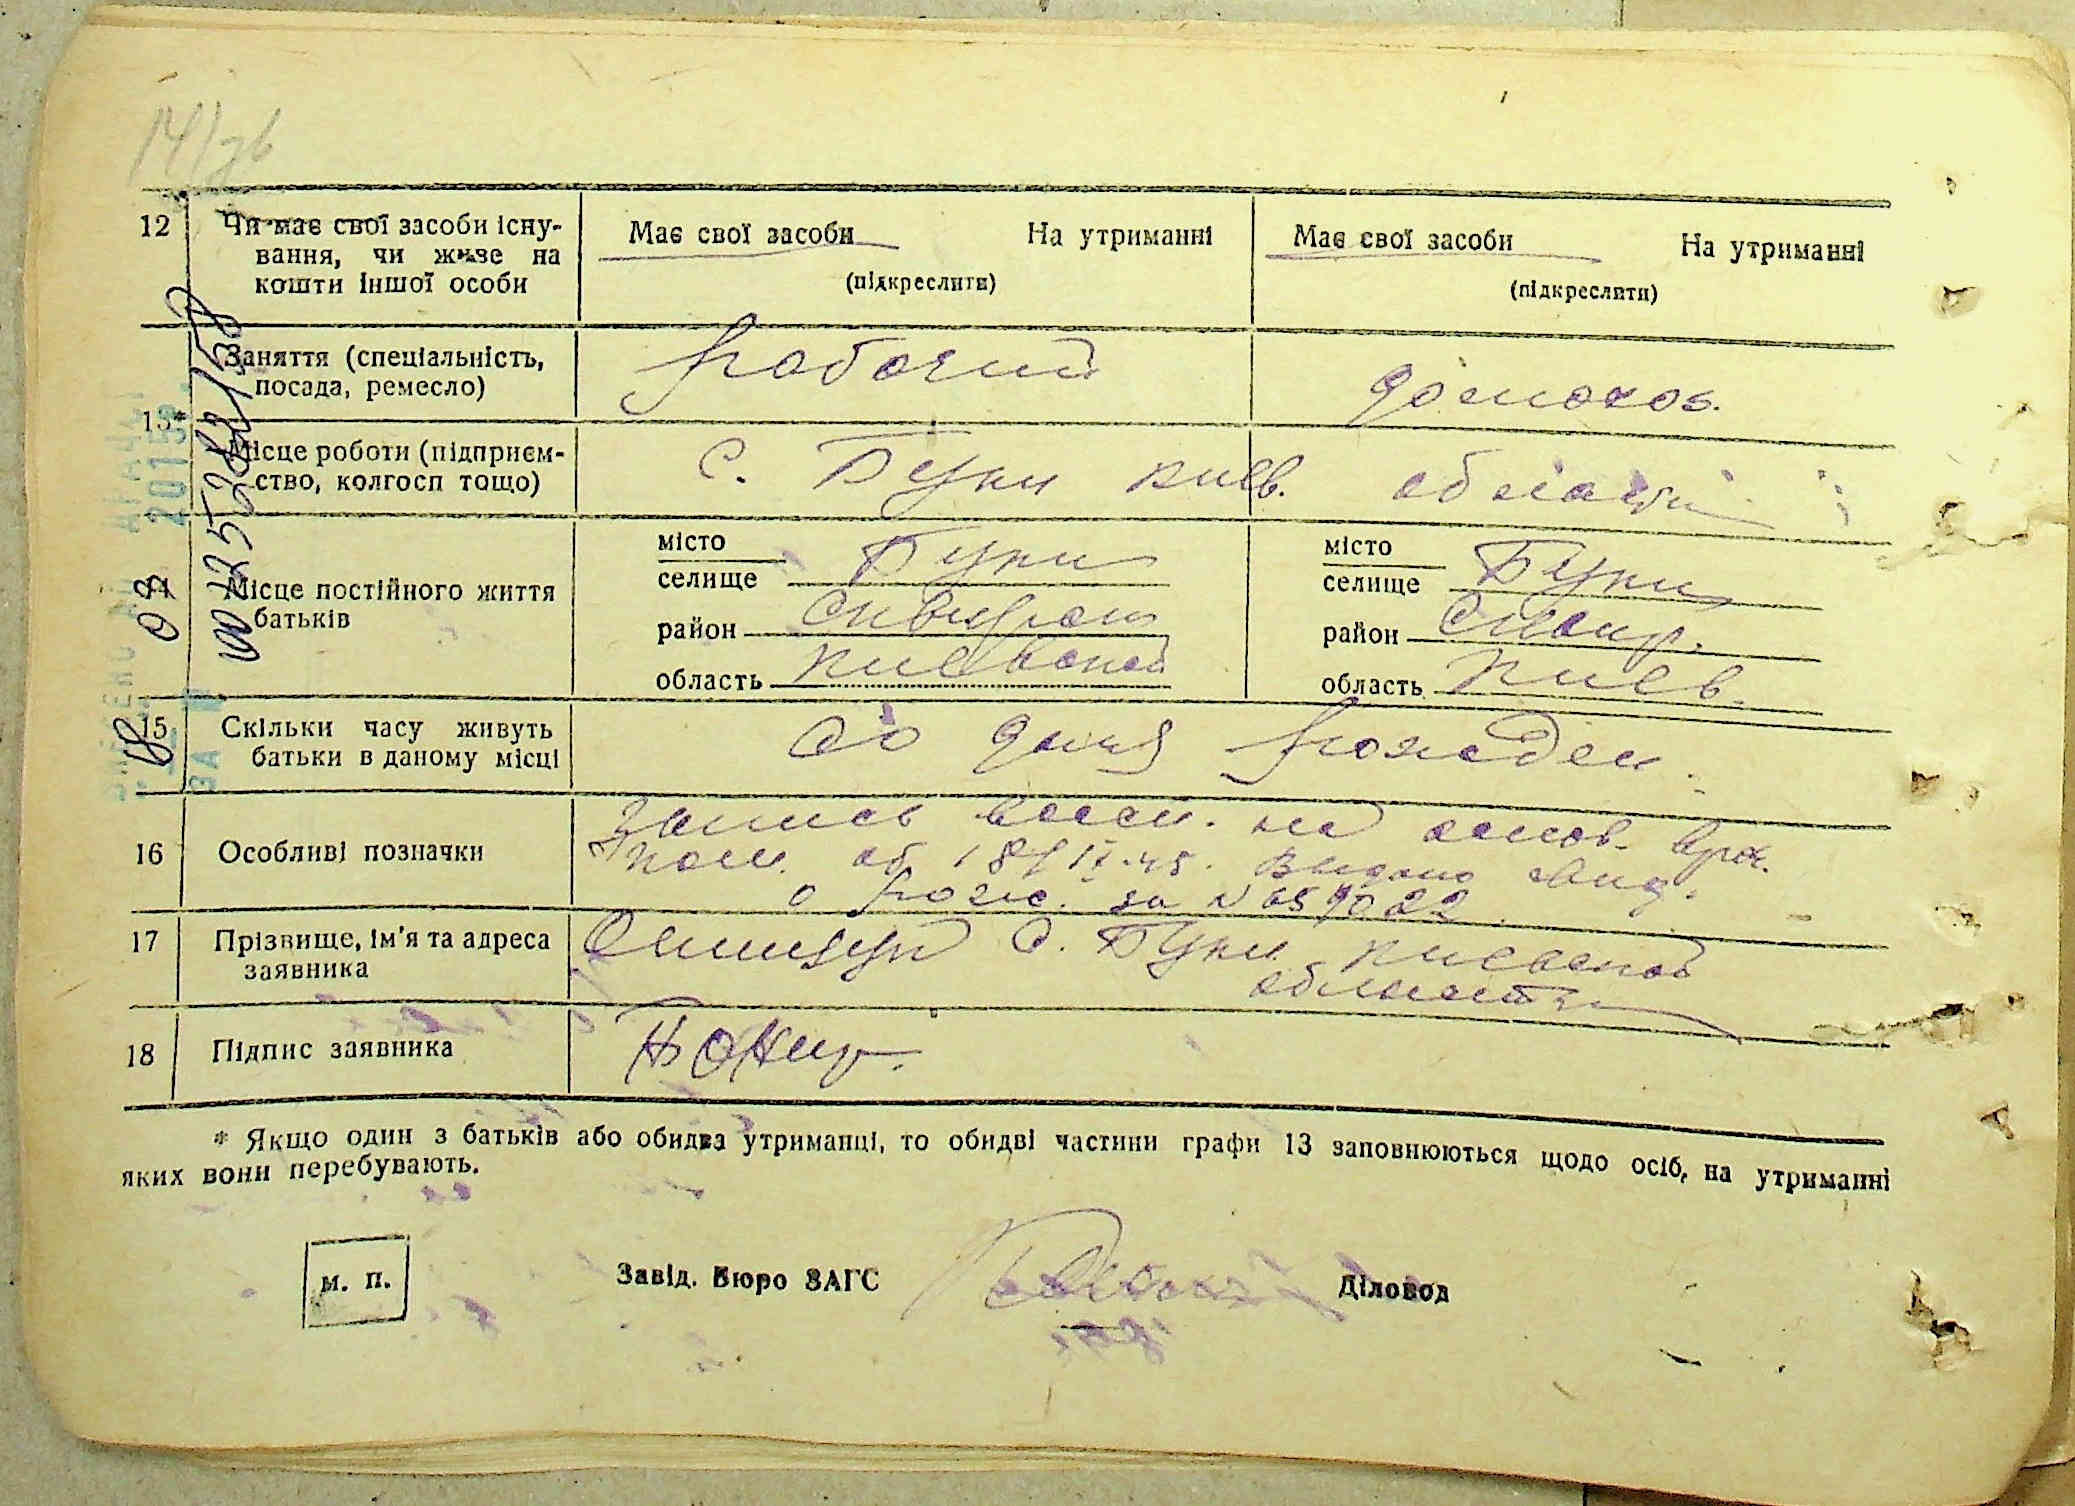 141зв
12 Чи має свої засоби існу-
вання, чи живе на
кошти іншої особи
Має свої засоби На утриманні
(підкреслити)
Має свої засоби На утриманні
(підкреслити)
13*
Заняття (спеціальність,
посада, ремесло)
рабочий
домохоз.
Місце роботи (підприєм-
ство, колгосп тощо)
с. Буки киев. области
Місце постійного життя
батьків
місто
селище Буки
район Сквирск
область Киевской
місто
селище Буки
район Сквир.
область Киев.
15 Скільки часу живуть
батьки в даному місці
со дня рожден.
16 Особливі позначки
Запись восст. на основ. врач.
ком. об 18/IV-45. Выдано свид.
о рожд. за №
17 Прізвище, ім'я та адреса
заявника
с. Буки Киевской
области
18 Підпис заявника
* Якщо один з батьків або обидва утриманці, то обидві частини графи 13 заповнюються щодо осіб, на утриманні
яких вони перебувають.
м. п.
Завід. Бюро ЗАГС
Діловод